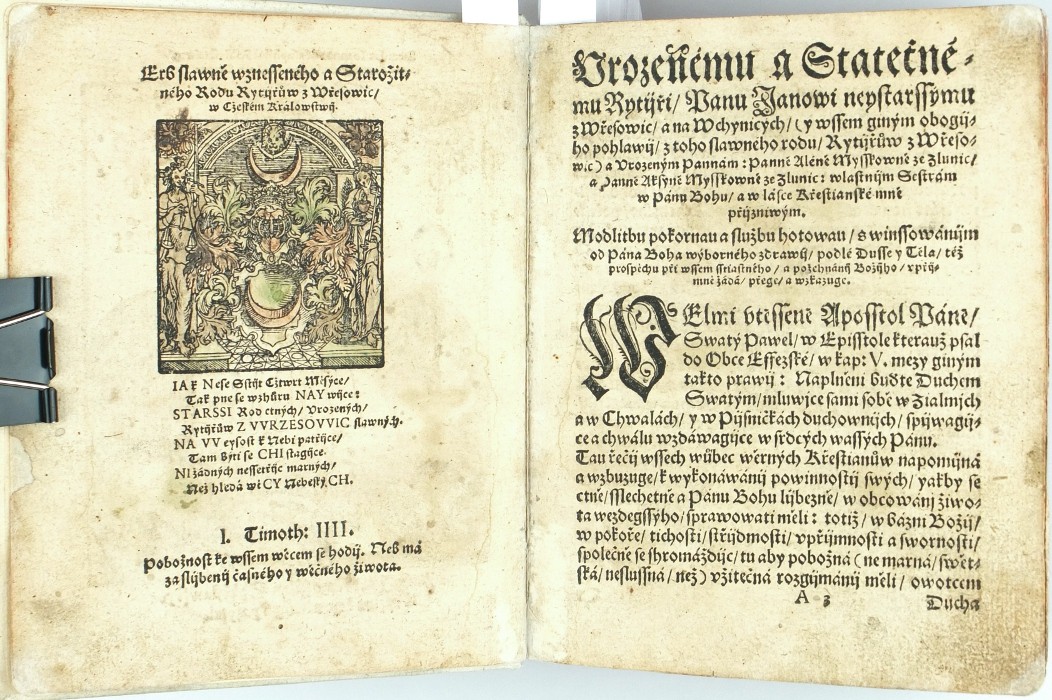 Erb slawně wznesseného a Starožit-
ného Rodu Rytijřůw z Wřesowic/
w Czeském Králowstwij.
IAk Nese Sstijt Cztwrt Měsyce/
Tak pne se wzhůru NAY wijce:
STARSSI Rod ctných/ Vrozených/
Rytijřůw Z VVRZESOVVIC slawných.
NA VV eysost k Nebi patřijce/
Tam býti se CHI stagijce.
NI žádných nessetřijc marných/
Než hledá wěCY NebeskýCH.
I. Timoth: IIII.
Pobožnost ke wssem wěcem se hodij. Neb má
zaslijbenij časného y wěčného života.
Vrozenému a Statečné-
mu Rytijři/ Panu Janowi neystarssymu
z Wřesowic/ a na Wchynicých/ (y wssem giným obogij-
ho pohlawij/ z toho slawného rodu/ Rytijřůw z Wřeso-
wic) a Vrozeným Pannám: Panně Aléně Mysskowně ze Zlunic/
a Panně Aksyně Mysskowně ze Zlunic: wlastnijm Sestrám
w Pánu Bohu/ a w lásce Křestianské mně
přijzniwým.
Modlitbu pokornau a službu hotowau/ s winssowánijm
od Pána Boha wýborného zdrawij/ podlé Dusse y Těla/ též
prospěchu při wssem sstiastného/ a požehnánij Božijho/ vpřij-
mně žádá/ přege/ a wzkazuge.
WElmi vtěsseně Aposstol Páně/
Swatý Pawel/ w Episstole kterauž psal
do Obce Effezské/ w kap: V. mezy giným
takto prawij: Naplněni buďte Duchem
Swatým/ mluwijce sami sobě w Žialmjch
a w Chwalách/ y w Pijsničkách duchownijch/ spijwagij-
ce a chwálu wzdáwagijce w srdcých wassých Pánu.
Tau řečij wssech wůbec wěrných Křestianůw napomijná
a wzbuzuge/ k wykonáwánij powinnostij swých/ yakby se
ctně/ sslechetně a Pánu Bohu lijbezně/ w obcowánj živo-
ta wezdegssýho/ sprawowati měli: totiž/ w bázni Božij/
w pokoře/ tichosti/ střijdmosti/ vpřijmnosti a swornosti/
společně se shromáždijc/ tu aby pobožná (ne marná/ swět-
ská/ neslussná/ než) vžitečná rozgijmánij měli/ owotcem
A 3
Ducha